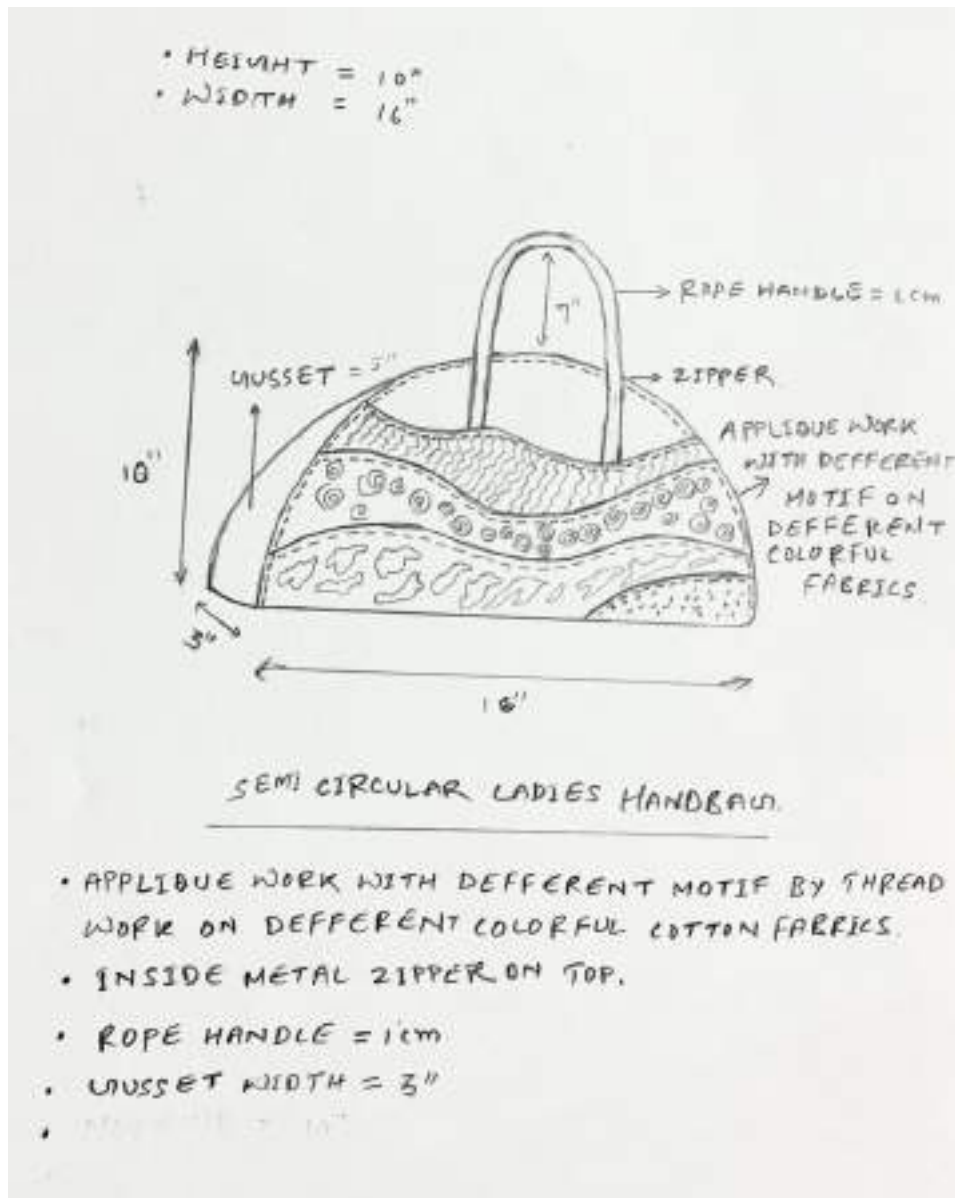 • HEIGHT = 10"
• WIDTH = 16"
7"
ROPE HANDLE = 1 cm
GUSSET = 3"
ZIPPER
APPLIQUE WORK
WITH DEFFERENT
MOTIF ON
DEFFERENT
COLORFUL
FABRICS
10"
3"
16"
SEMI CIRCULAR LADIES HANDBAG.
• APPLIQUE WORK WITH DEFFERENT MOTIF BY THREAD
WORK ON DEFFERENT COLORFUL COTTON FABRICS.
• INSIDE METAL ZIPPER ON TOP.
• ROPE HANDLE = 1cm
• GUSSET WIDTH = 3"
•